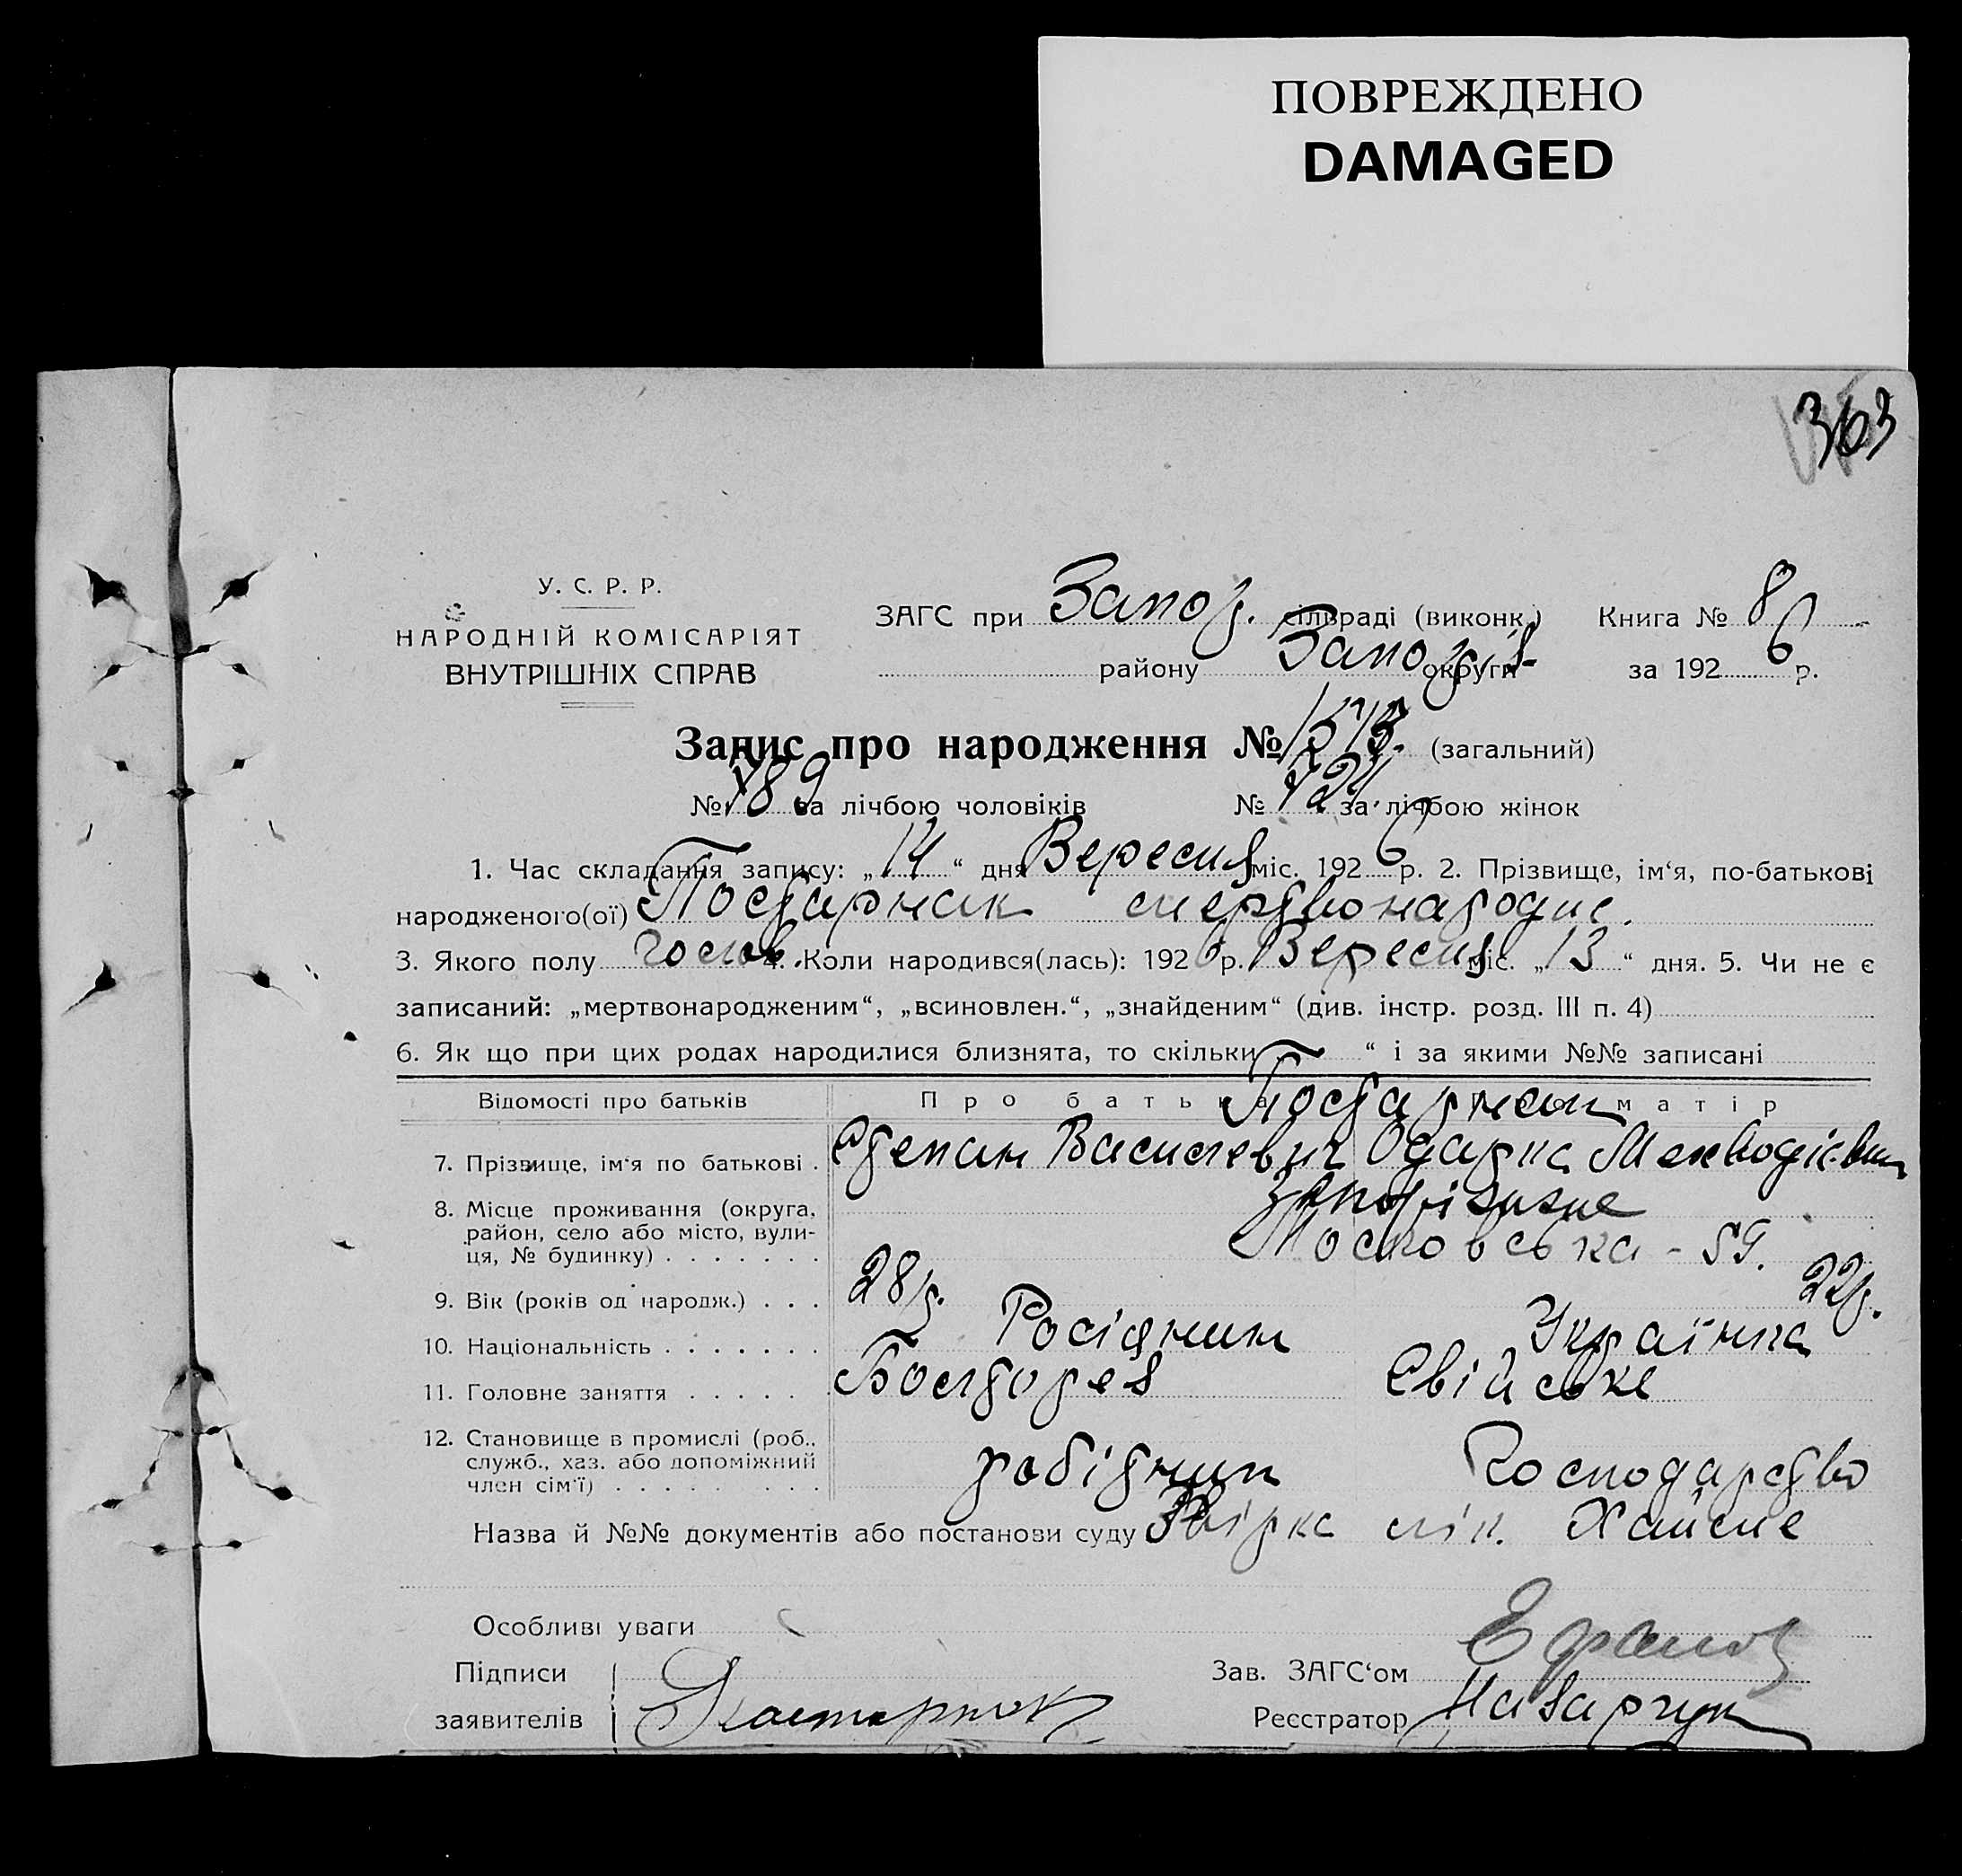 ПОВРЕЖДЕНО
DAMAGED
363
У. С. Р. Р.
НАРОДНІЙ КОМІСАРІЯТ
ВНУТРІШНІХ СПРАВ
ЗАГС при Запор. сільраді (виконк.) Книга № 8
району Запоріз. округи за 1926 р.
Запис про народження № (загальний)
№ 789 за лічбою чоловіків № 724 за лічбою жінок
1. Час складання запису: „14“ дня Вересня міс. 1926 р. 2. Прізвище, ім‘я, по-батькові
народженого(ої) Постарнак мертвонародне.
3. Якого полу 4. Коли народився(лась): 1926 р. Вересня міс. „13“ дня. 5. Чи не є
записаний: „мертвонародженим“, „всиновлен.“, „знайденим“ (див. інстр. розд. III п. 4)
6. Як що при цих родах народилися близнята, то скільки “ і за якими №№ записані
Відомості про батьків Про батька матір
Постарнак
7. Прізвище, ім‘я по батькові . Степан Васильевич Одарка Мехводієвна
8. Місце проживання (округа, Запоріжжє
район, село або місто, вули- Московська - 59.
ця, № будинку) . . . . . . .
9. Вік (років од народж.) . . . 28 р. 22 р.
10. Національність . . . . . . . Росіянин Українка
11. Головне заняття . . . . . . Свійське
12. Становище в промислі (роб.,
служб., хаз. або допоміжний робітник Господарство
член сім‘ї) . . . . . . . .
Назва й №№ документів або постанови суду лік.
Особливі уваги
Підписи Зав. ЗАГС‘ом
заявителів Постарнак Реєстратор Назарчук